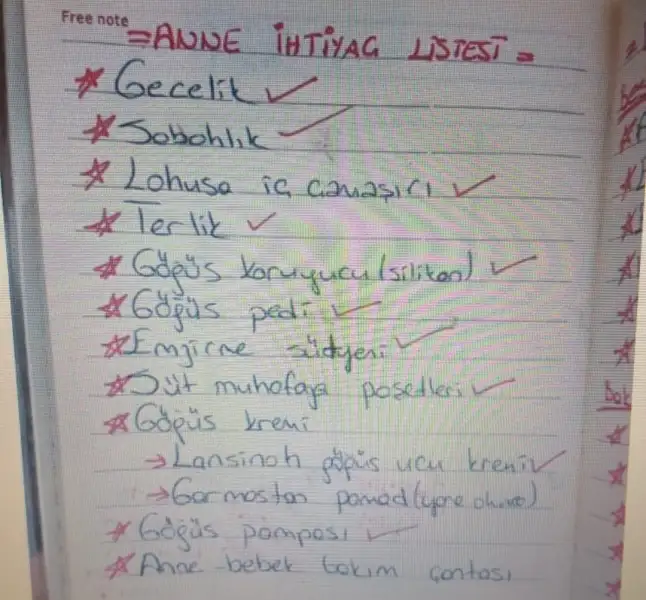 Free note
=ANNE İHTİYAÇ LİSTESİ=
Gecelik
Sabahlık
Lohusa iç çamaşırı
Terlik
Göğüs koruyucu (silikon)
Göğüs pedi
Emzirme sütyeni
Süt muhafaza poşetleri
Göğüs kremi
→Lansinoh göğüs ucu kremi
→Garmastan pomad (yara
Göğüs pompası
Anne bebek bakım çantası